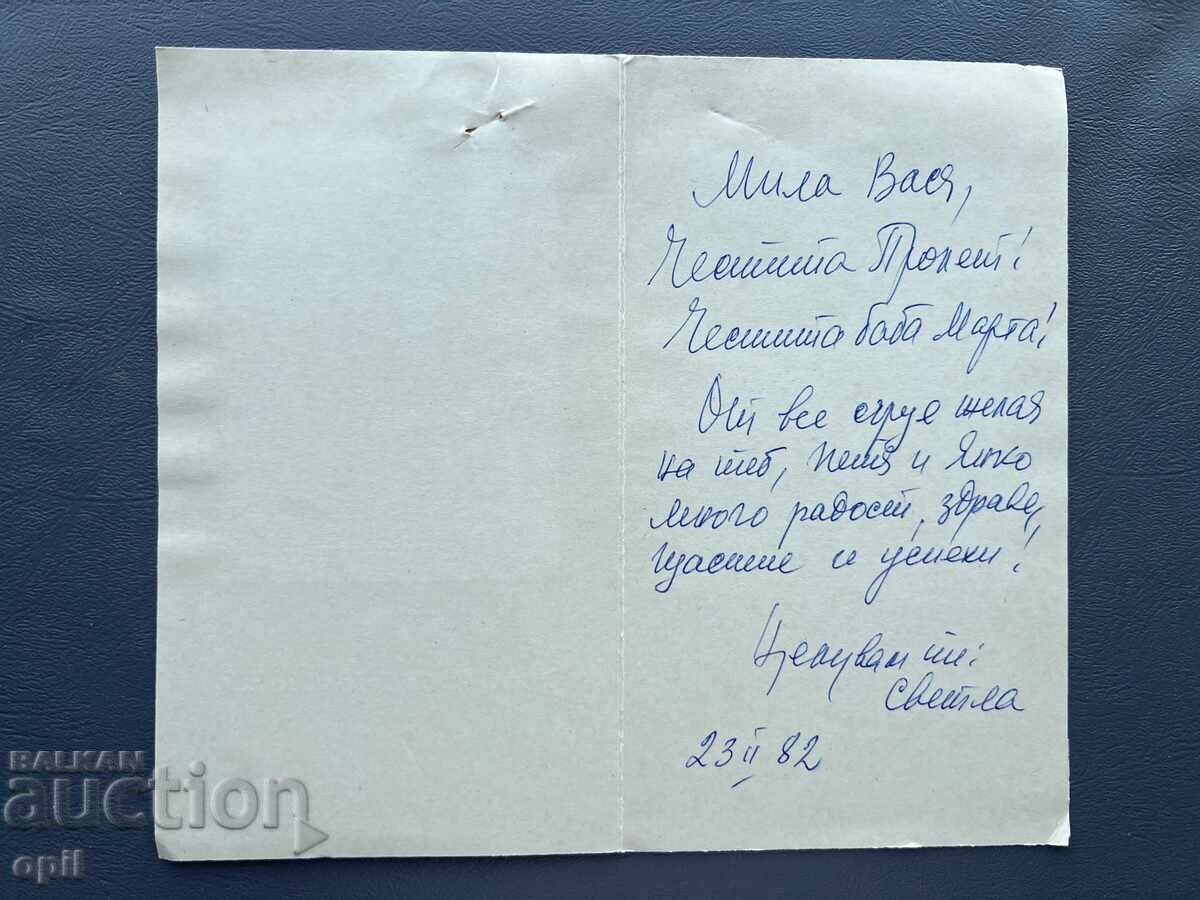 Мила Вася,
Честита Пролет!
Честита баба Марта!
От все сърце желая
на теб, Петя и Янко
много радост, здраве,
щастие и успехи!
Целувам ти:
Светла
23 II 82
BALKAN
auction
opil